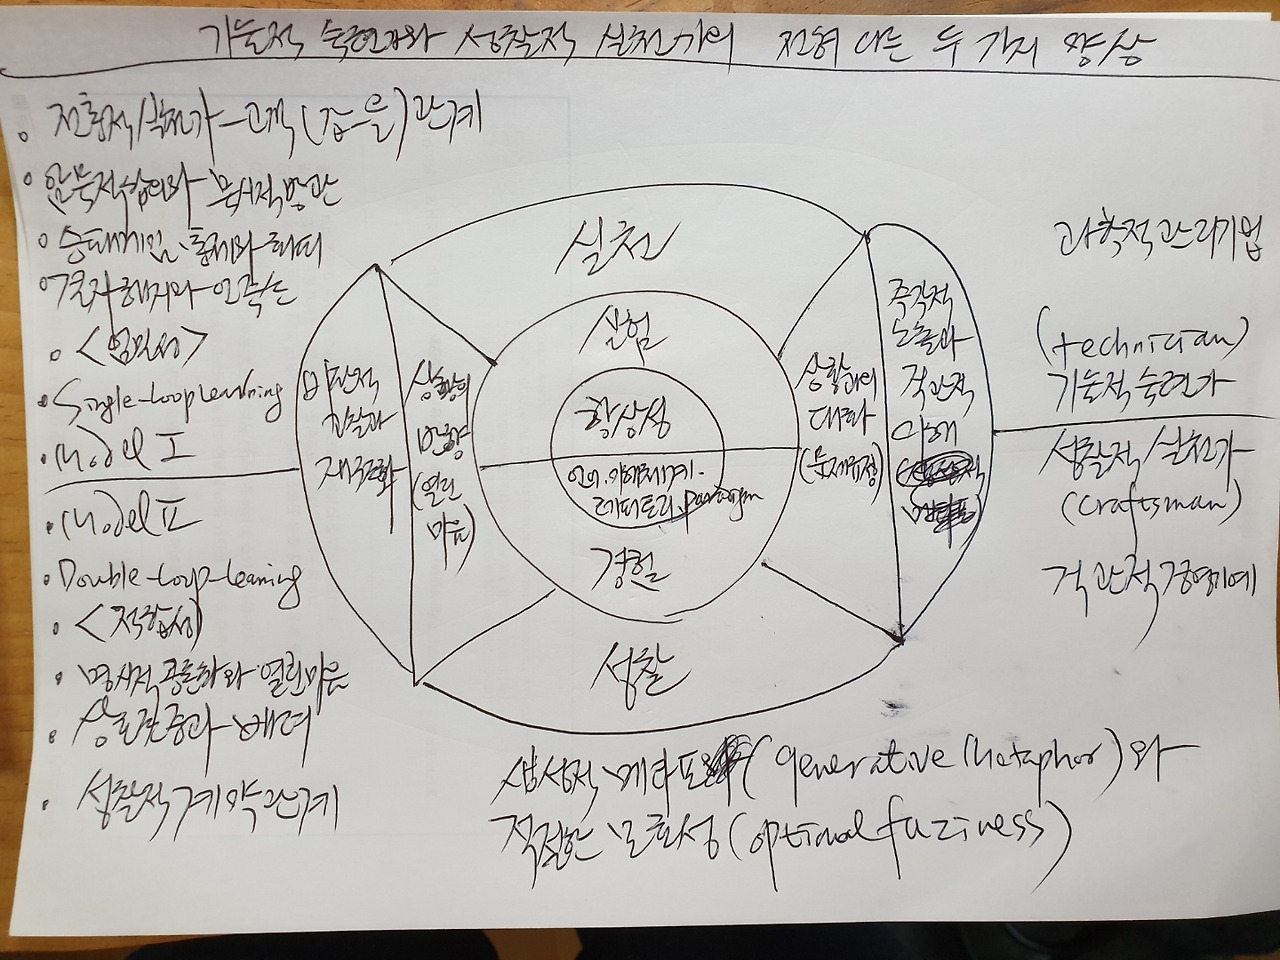 기능적 숙련가와 성찰적 실천가의 전혀 다른 두 가지 양상
• 전통적/실천가-고객(갑-을)관계
• 암묵적 심의와 문서적 방관
• 승패게임, 통제와 회피
•
• <
• Single-loop learning
• Model I
• Model II
• Double-loop-learning
• <적합성>
• 명시적 공론화와 열린마음
• 상호존중과 배려
• 성찰적 계약관계
실천
실험
항상성
언어.이해체계.
레퍼토리.paradigm
경험
성찰
비판적
진술과
재구조화
상황의
반향
(열린
마음)
상황과의
대화
(문제설정)
즉각적
노출과
직관적
이해
과학적 관리기법
(technician)
기능적 숙련가
성찰적/실천가
(craftsman)
직관적 경영기예
생성적 메타포(generative metaphor)와
적절한 모호성(optional fuziness)